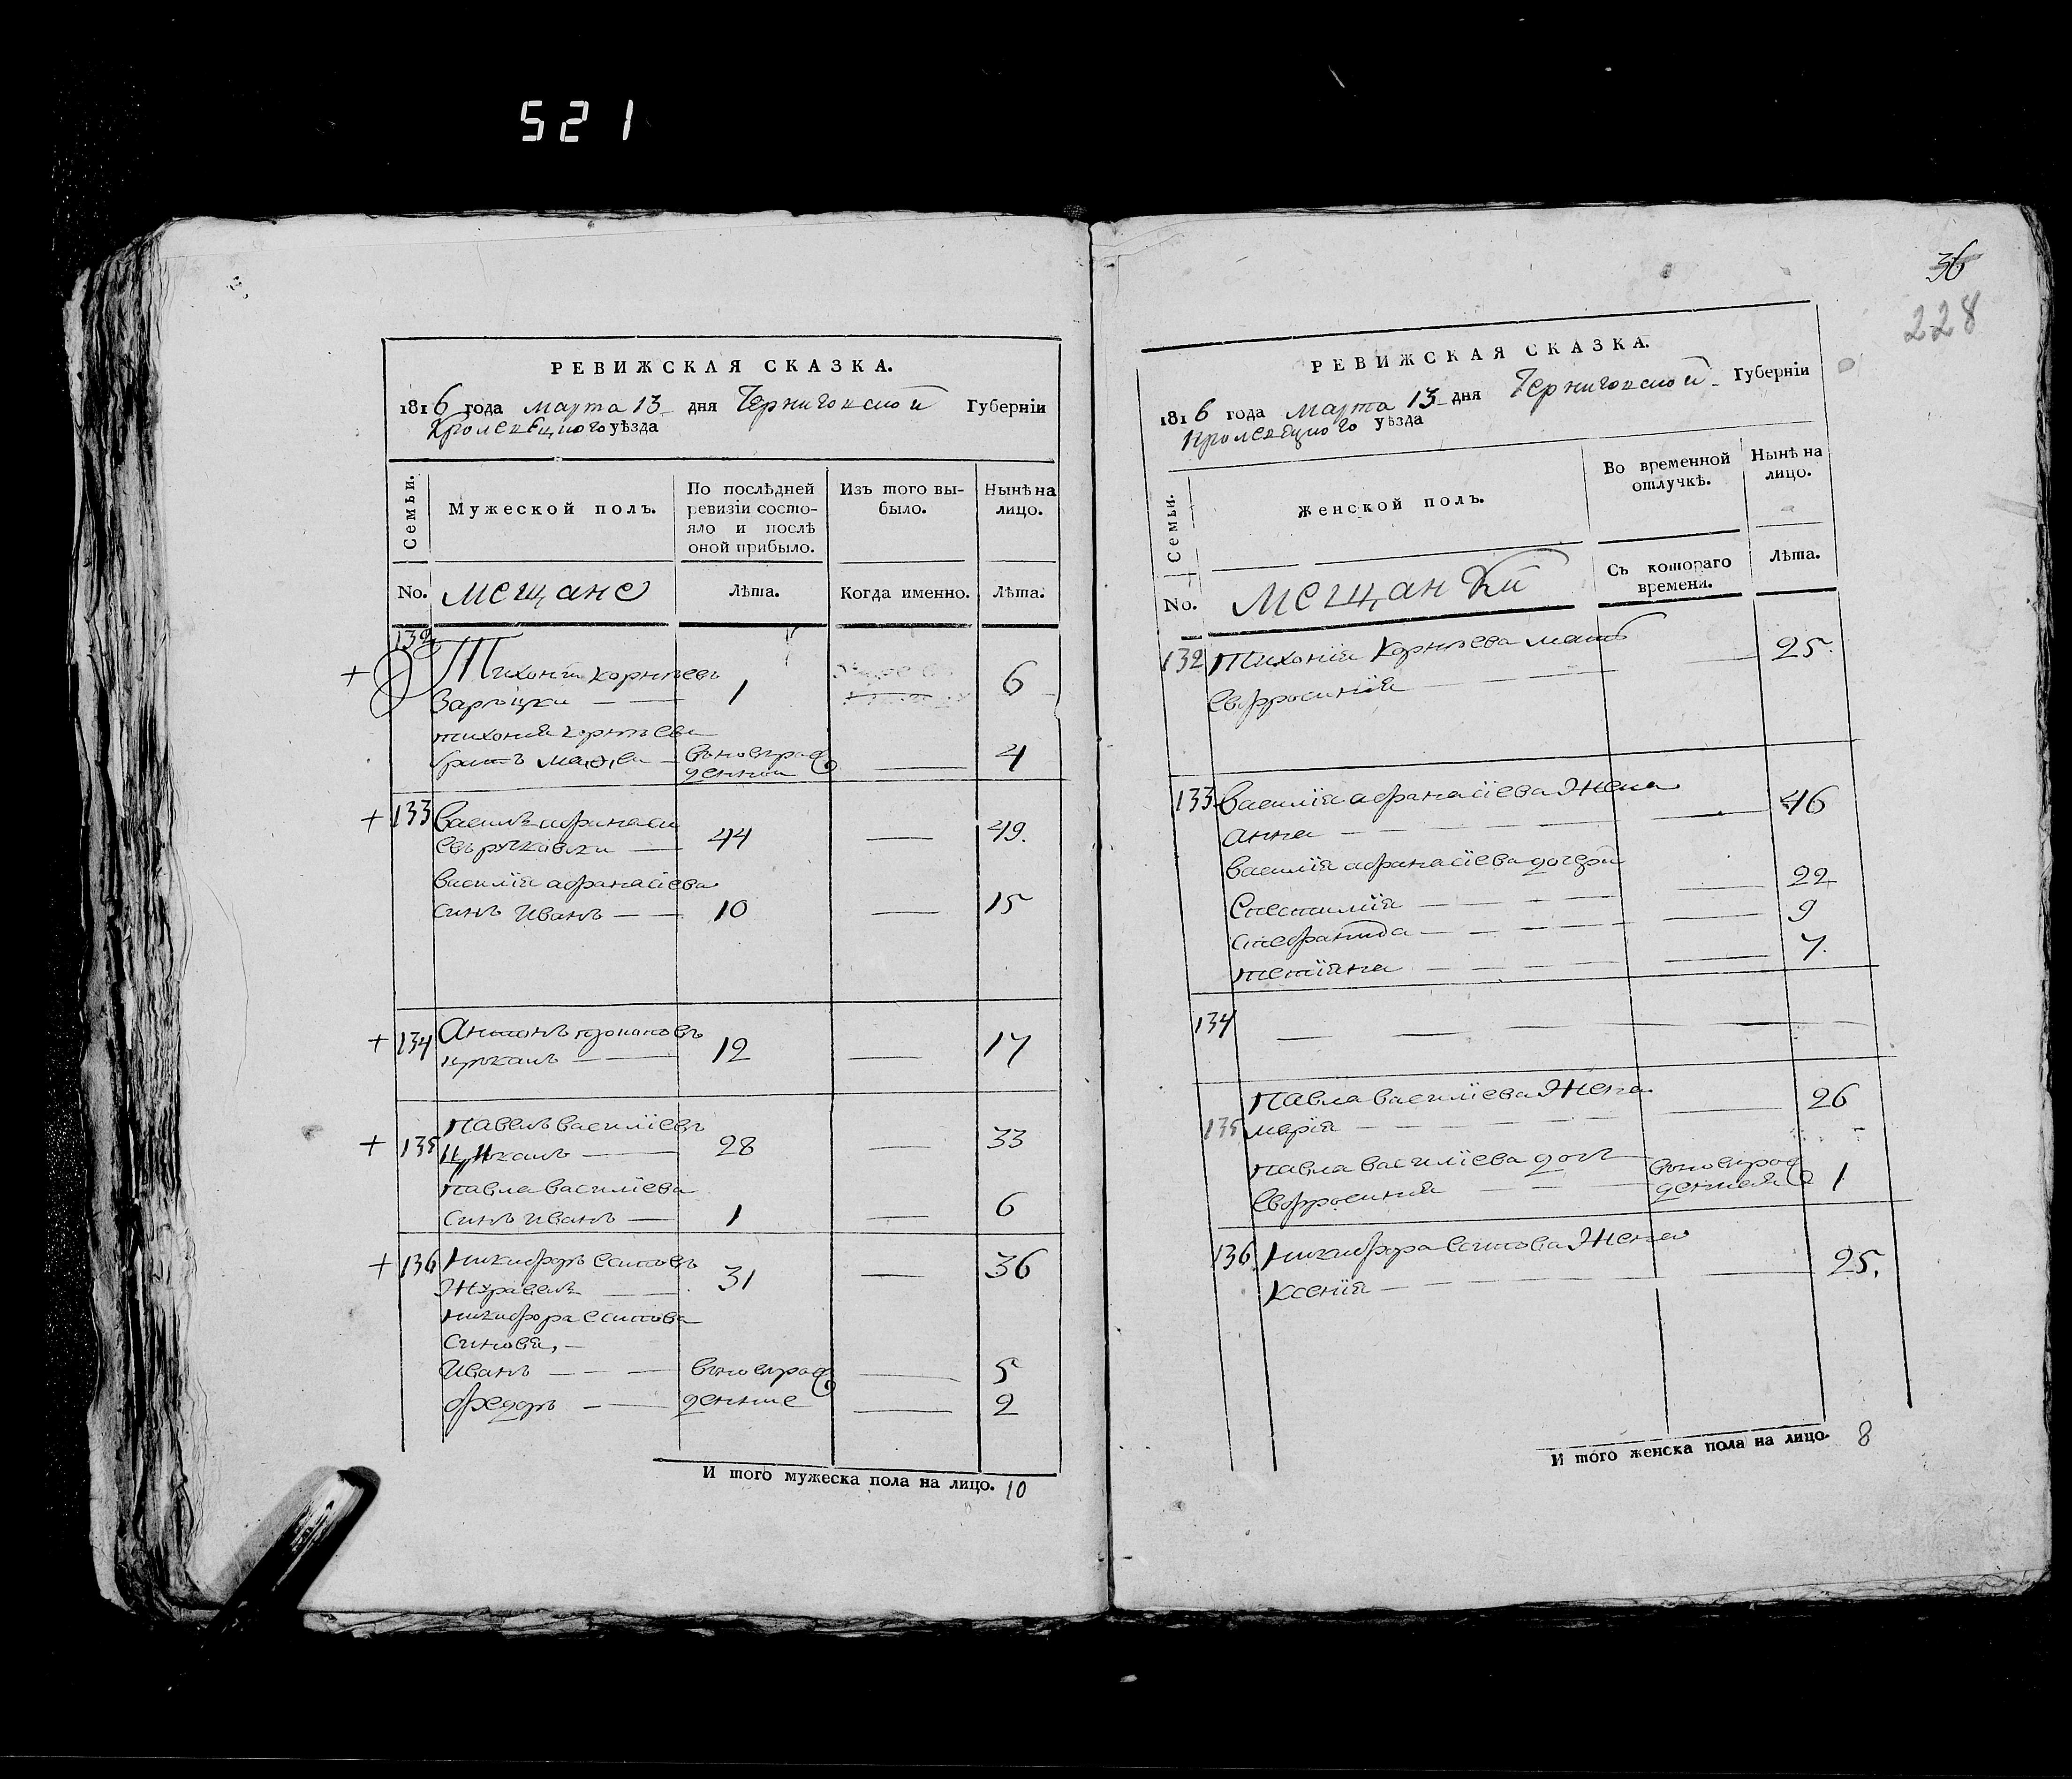 521
РЕВИЖСКАЯ СКАЗКА.
1816 года марта 13 дня Черниговской Губерніи
Кролевецкого уѣзда
Семьи.
Мужеской полъ.
По послѣдней ревизіи состо-
яло и послѣ
оной прибыло.
Изъ того вы-
было.
Нынѣ на
лицо.
No. мещане Лѣта. Когда именно. Лѣта.
132
Тихонъ Корнѣевъ
1 6
тихона корнѣева
братъ новорож
денни 4
133 Василь афанасі
44 49.
василія афанасіева
синъ Иванъ 10 15
134 Антонъ
12 17
Павелъ василіевъ
135 28 33
Павла василіева
синъ иванъ 1 6
136 Никифоръ есиповъ
Журавель 31 36
никифора есипова
синовя,
Иванъ вновьрож 5
Федоръ денние 2
И того мужеска пола на лицо. 10
36
228
РЕВИЖСКАЯ СКАЗКА.
1816 года марта 13 дня Черниговской Губерніи
кролевецкого уѣзда
Семьи.
Женской полъ.
Во временной
отлучкѣ.
Нынѣ на
лицо.
No. мещанки
Съ котораго
времени.
Лѣта.
132 Тихонія Корнѣева мать 25.
Евфросинія
133 Василія афанасіева Жена
анна 46
василія афанасіева дочери
22
9
Тетіяна 7.
134
Павла василіева Жена
135 марія 26
Павла василіева дочь вновьрож
Евфросинія денная 1
136 Никифора есипова Жена
Ксенія 25.
И того женска пола на лицо. 8